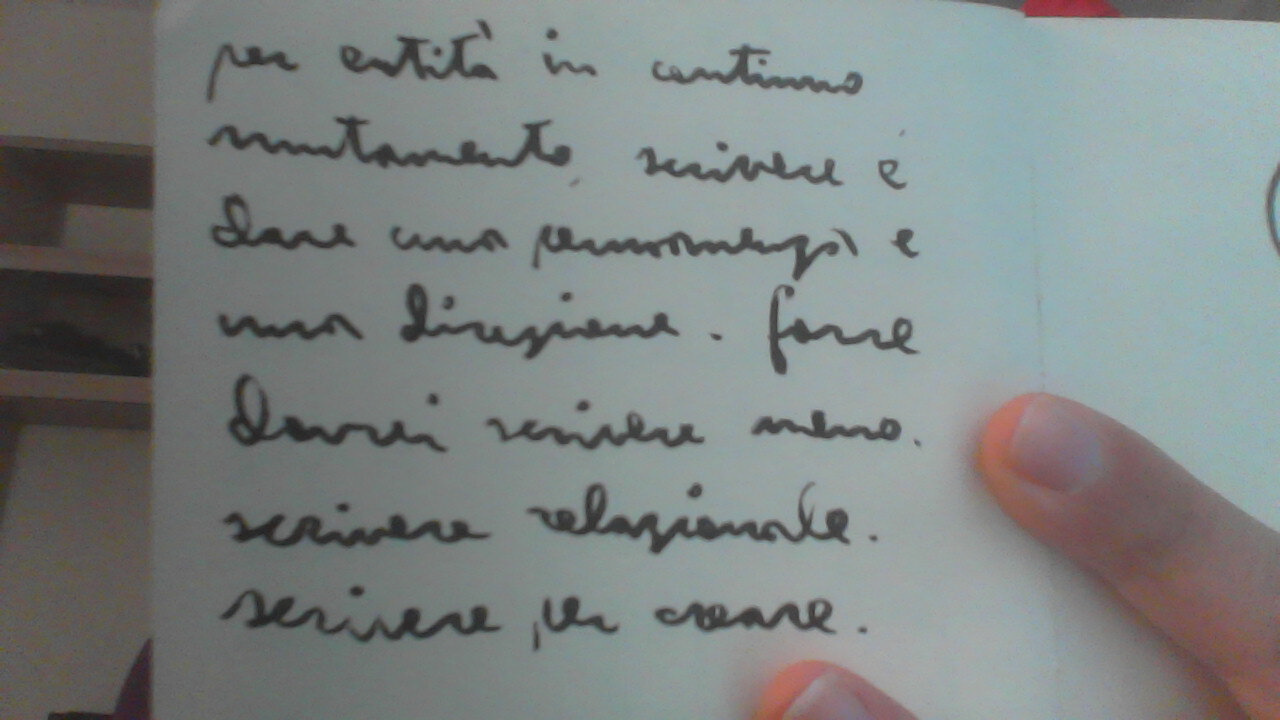 per entità in continuo
mutamento, scrivere è
dare una permanenza e
una direzione. forse
Dovrei scrivere meno.
scrivere relazionale.
scrivere per creare.